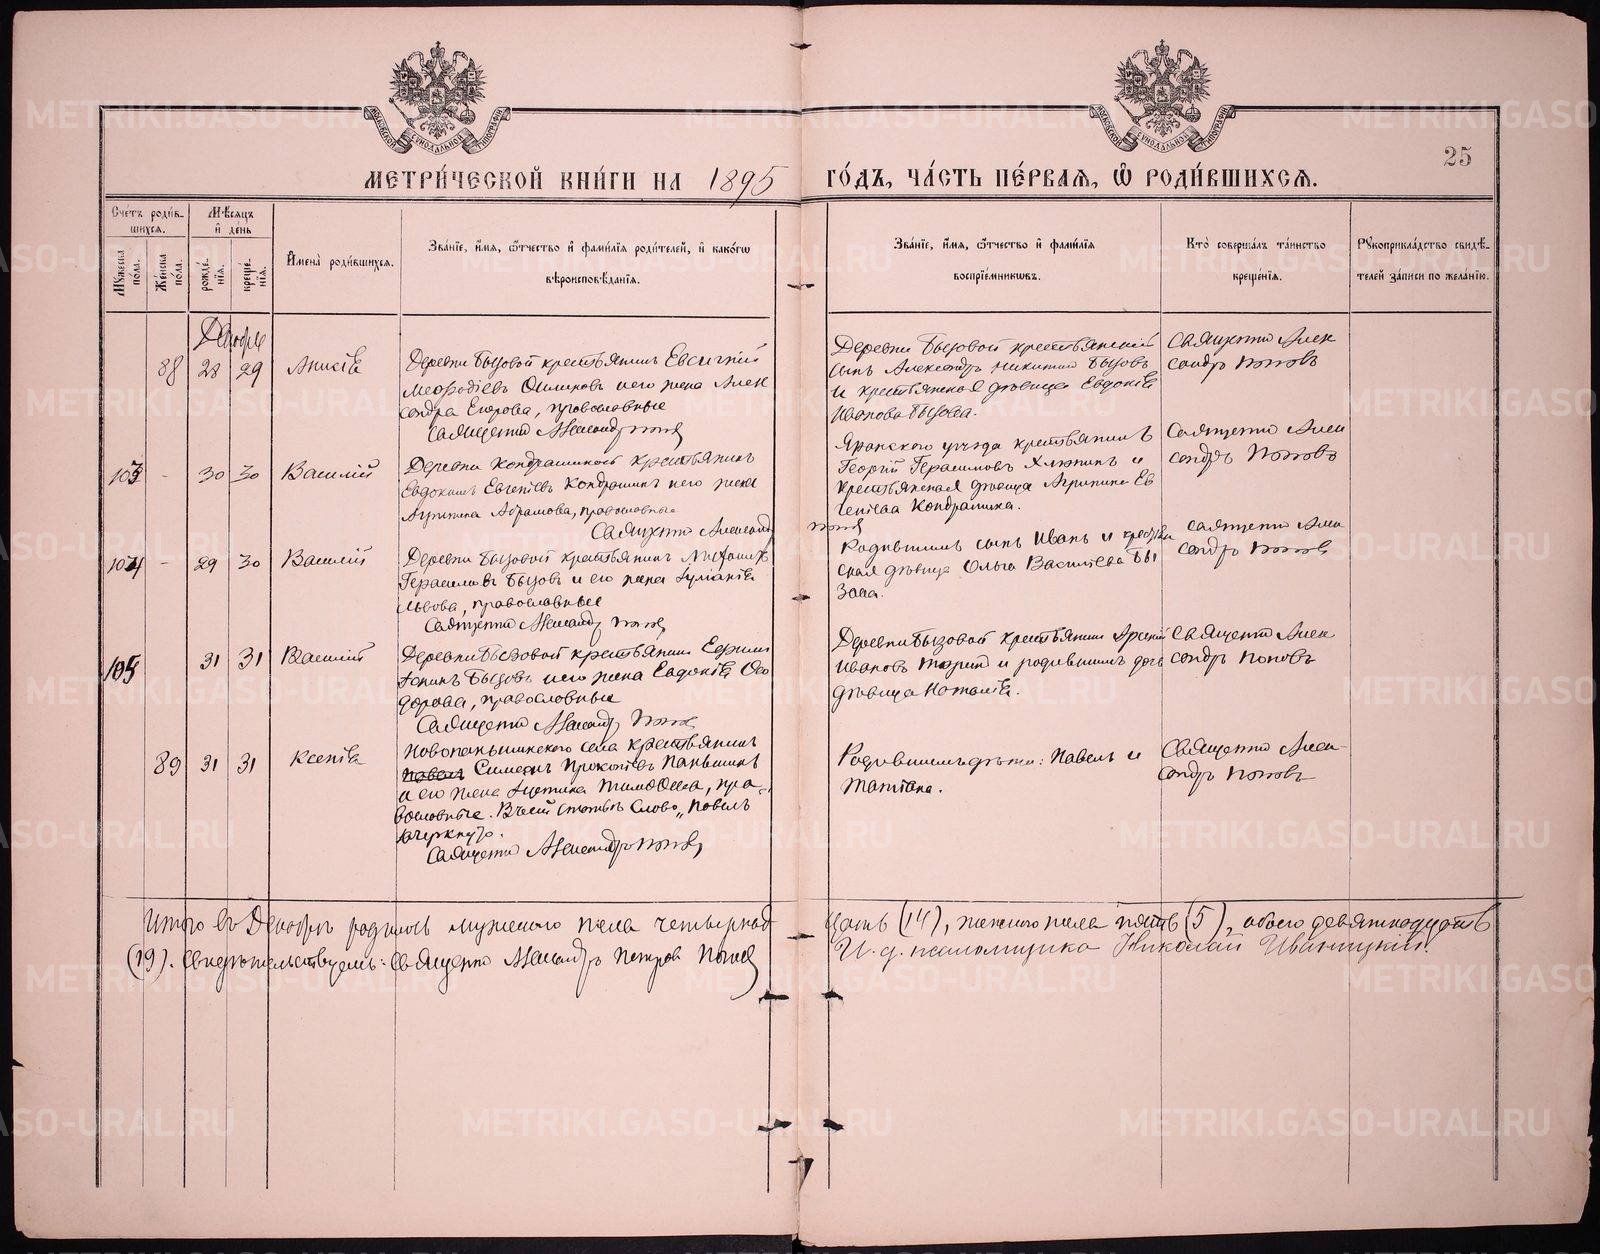 МОСКОВСКОЙ СѴНОДАЛЬНОЙ ТИПОГРАФІИ
МОСКОВСКОЙ СѴНОДАЛЬНОЙ ТИПОГРАФІИ
25
МЕТРИ́ЧЕСКОЙ КНИ́ГИ НА 1895 ГО́ДЪ, ЧА́СТЬ ПЕ́РВАЯ, Ѽ РОДИ́ВШИХСЯ.
Сче́тъ роди́в-
шихся.
Мѣ́сяцъ
и҆ де́нь
Мꙋ́жеска по́ла.
Же́нска по́ла.
рожде́-нїя.
креще́-нїя.
И҆мена̀ роди́вшихся.
Зва́нїе, и҆́мя, ѻ҆́тчество и҆ фами́лїя роди́телей, и҆ како́гѡ
вѣроисповѣ́данїя.
Зва́нїе, и҆́мя, ѻ҆́тчество и҆ фами́лїя
воспрїе́мникѡвъ.
Кто̀ соверша́лъ та́инство
креще́нїя.
Рꙋкоприкла́дство свидѣ́-
телей за́писи по жела́нїю.
Декабрь
88 28 29 Анисія
Деревни Бызовой крестьянинъ Евсигній
Меѳодіевъ и его жена Алек
сандра Егорова, православные
Священникъ Александръ Поповъ
Деревни Бызовой крестьянскій
сынъ Александръ Никитинъ Бызовъ
и крестьянская дѣвица Евдокія
Иванова Бызова.
Священникъ Алек
сандръ Поповъ
103 - 30 30 Василій
Деревни Кондрашиной крестьянинъ
Евдокимъ Евгеніевъ Кондрашинъ и его жена
Абрамова, православные
Священникъ Александръ
Поповъ
Яранскаго уѣзда крестьянинъ
Георгій Герасимовъ Хлюпинъ и
крестьянская дѣвица Агрипина Ев
геніева Кондрашина.
Священникъ Алек
сандръ Поповъ
104 - 29 30 Василій
Деревни Бызовой крестьянинъ Михаилъ
Герасимовъ Бызовъ и его жена
Львова, православные
Священникъ Александръ Поповъ
Родившимъ сынъ Иванъ и крестьян
ская дѣвица Ольга Василіева Бы
зова.
Священникъ Алек
сандръ Поповъ
105 31 31 Василій
Деревни Бызовой крестьянинъ Ефимъ
Бызовъ и его жена Евдокія Ѳео
дорова, православные
Священникъ Александръ Поповъ
Деревни Бызовой крестьянинъ Арсеній
Ивановъ и родившимъ дочь
дѣвица Наталія.
Священникъ Алек
сандръ Поповъ
89 31 31 Ксенія
Новопаньшинскаго села крестьянинъ
Павелъ Симеонъ Прокопіевъ Паньшинъ
и его жена Тимоѳеева, пра-
вославные. Въ сей статьѣ слово „Павелъ
зачеркнуто.
Священникъ Александръ Поповъ
Родившимъ дѣти: Павелъ и
Татіана.
Священникъ Алек-
сандръ Поповъ
Итого въ Декабрѣ родилось мужескаго пола четырнад
цать (14), женскаго пола пять (5), обоего девятнадцать
(19). Свидѣтельствуемъ: Священникъ Александръ Петровъ Поповъ
И. д. псаломщика Николай Иваницкій.